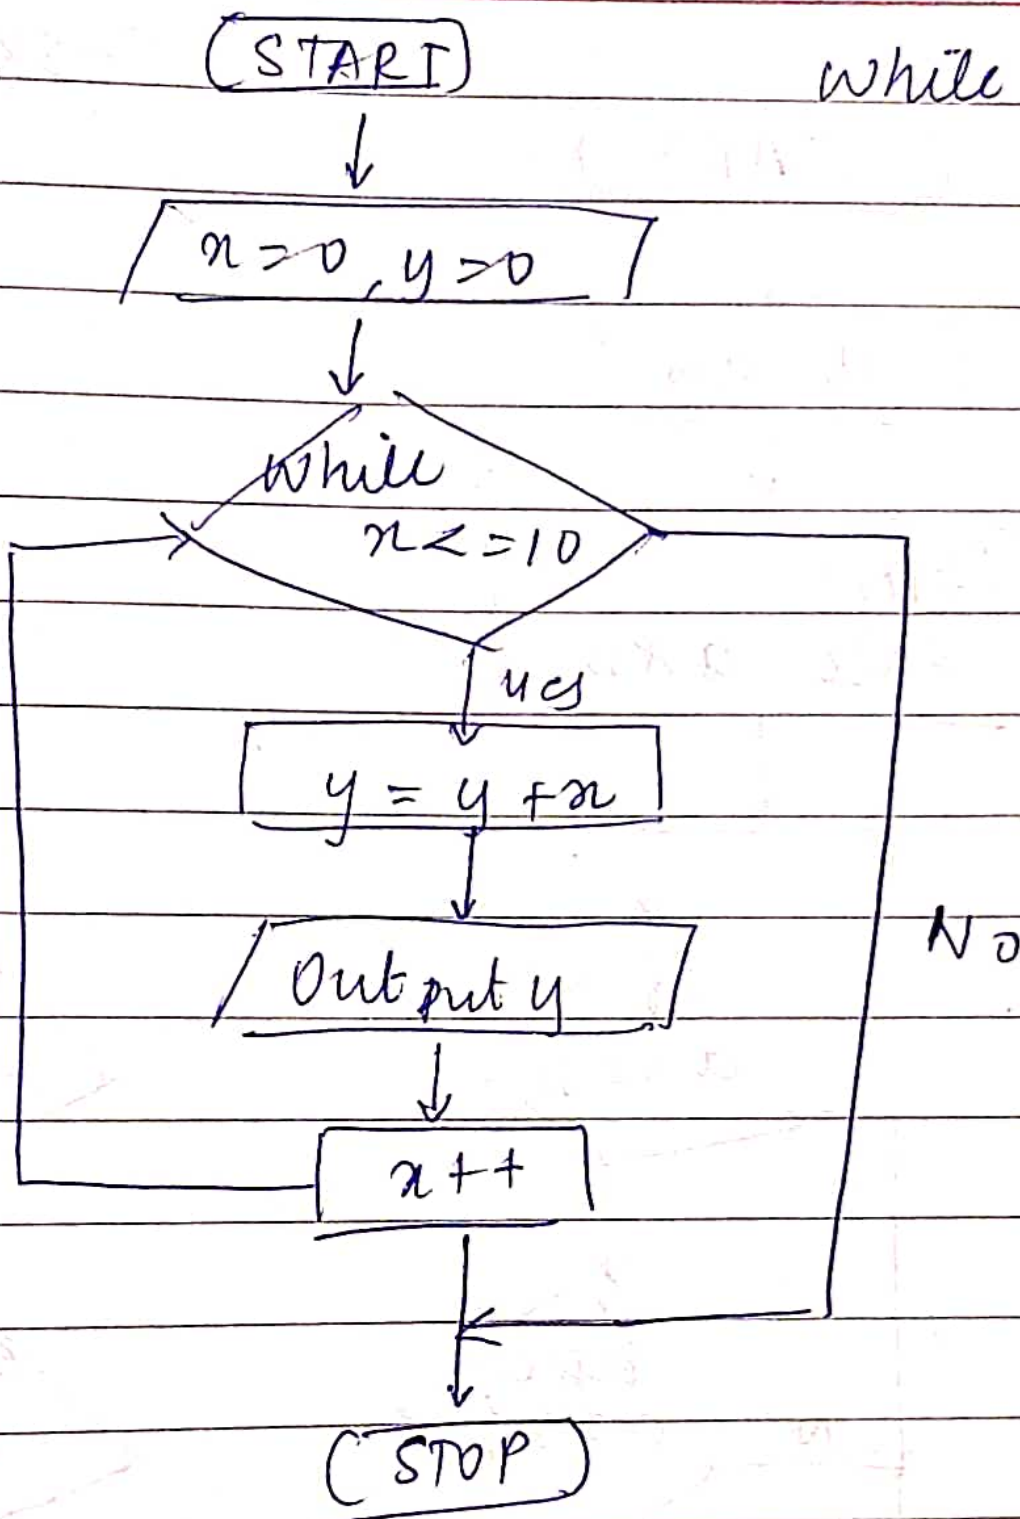 START
while
x=0, y=0
while
x<=10
yes
y = y+x
No
Output y
x++
STOP